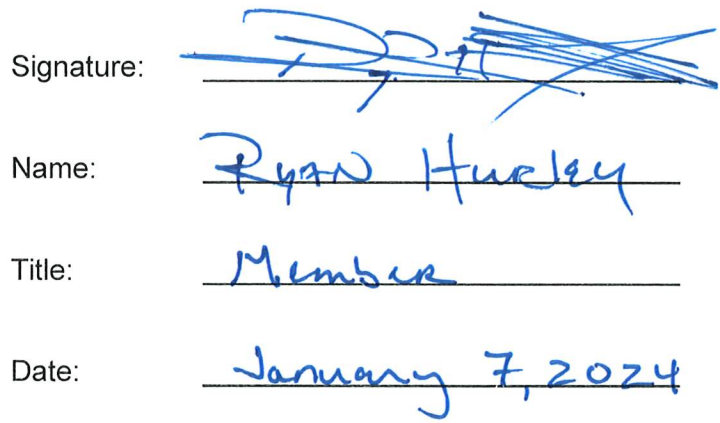 Signature:
Name: Ryan Hurley
Title: Member
Date: January 7, 2024